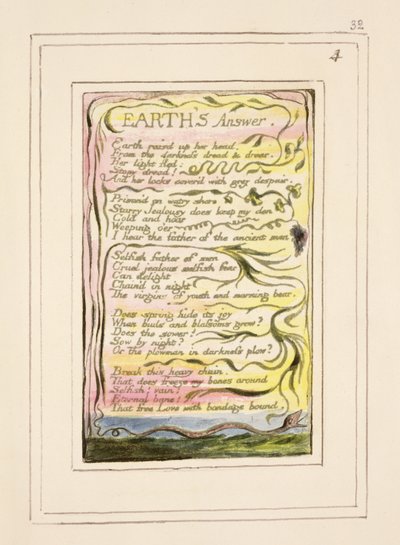 32
4
EARTH'S Answer.
Earth raisd up her head,
From the darkness dread & drear.
Her light fled:
Stony dread!
And her locks cover'd with grey despair.
Prison'd on watry shore
Starry Jealousy does keep my den
Cold and hoar
Weeping o'er
I hear the father of the ancient men
Selfish father of men
Cruel jealous selfish fear
Can delight
Chain'd in night
The virgins of youth and morning bear.
Does spring hide its joy
When buds and blossoms grow?
Does the sower?
Sow by night?
Or the plowman in darkness plow?
Break this heavy chain,
That does freeze my bones around
Selfish! vain!
Eternal bane!
That free Love with bondage bound.